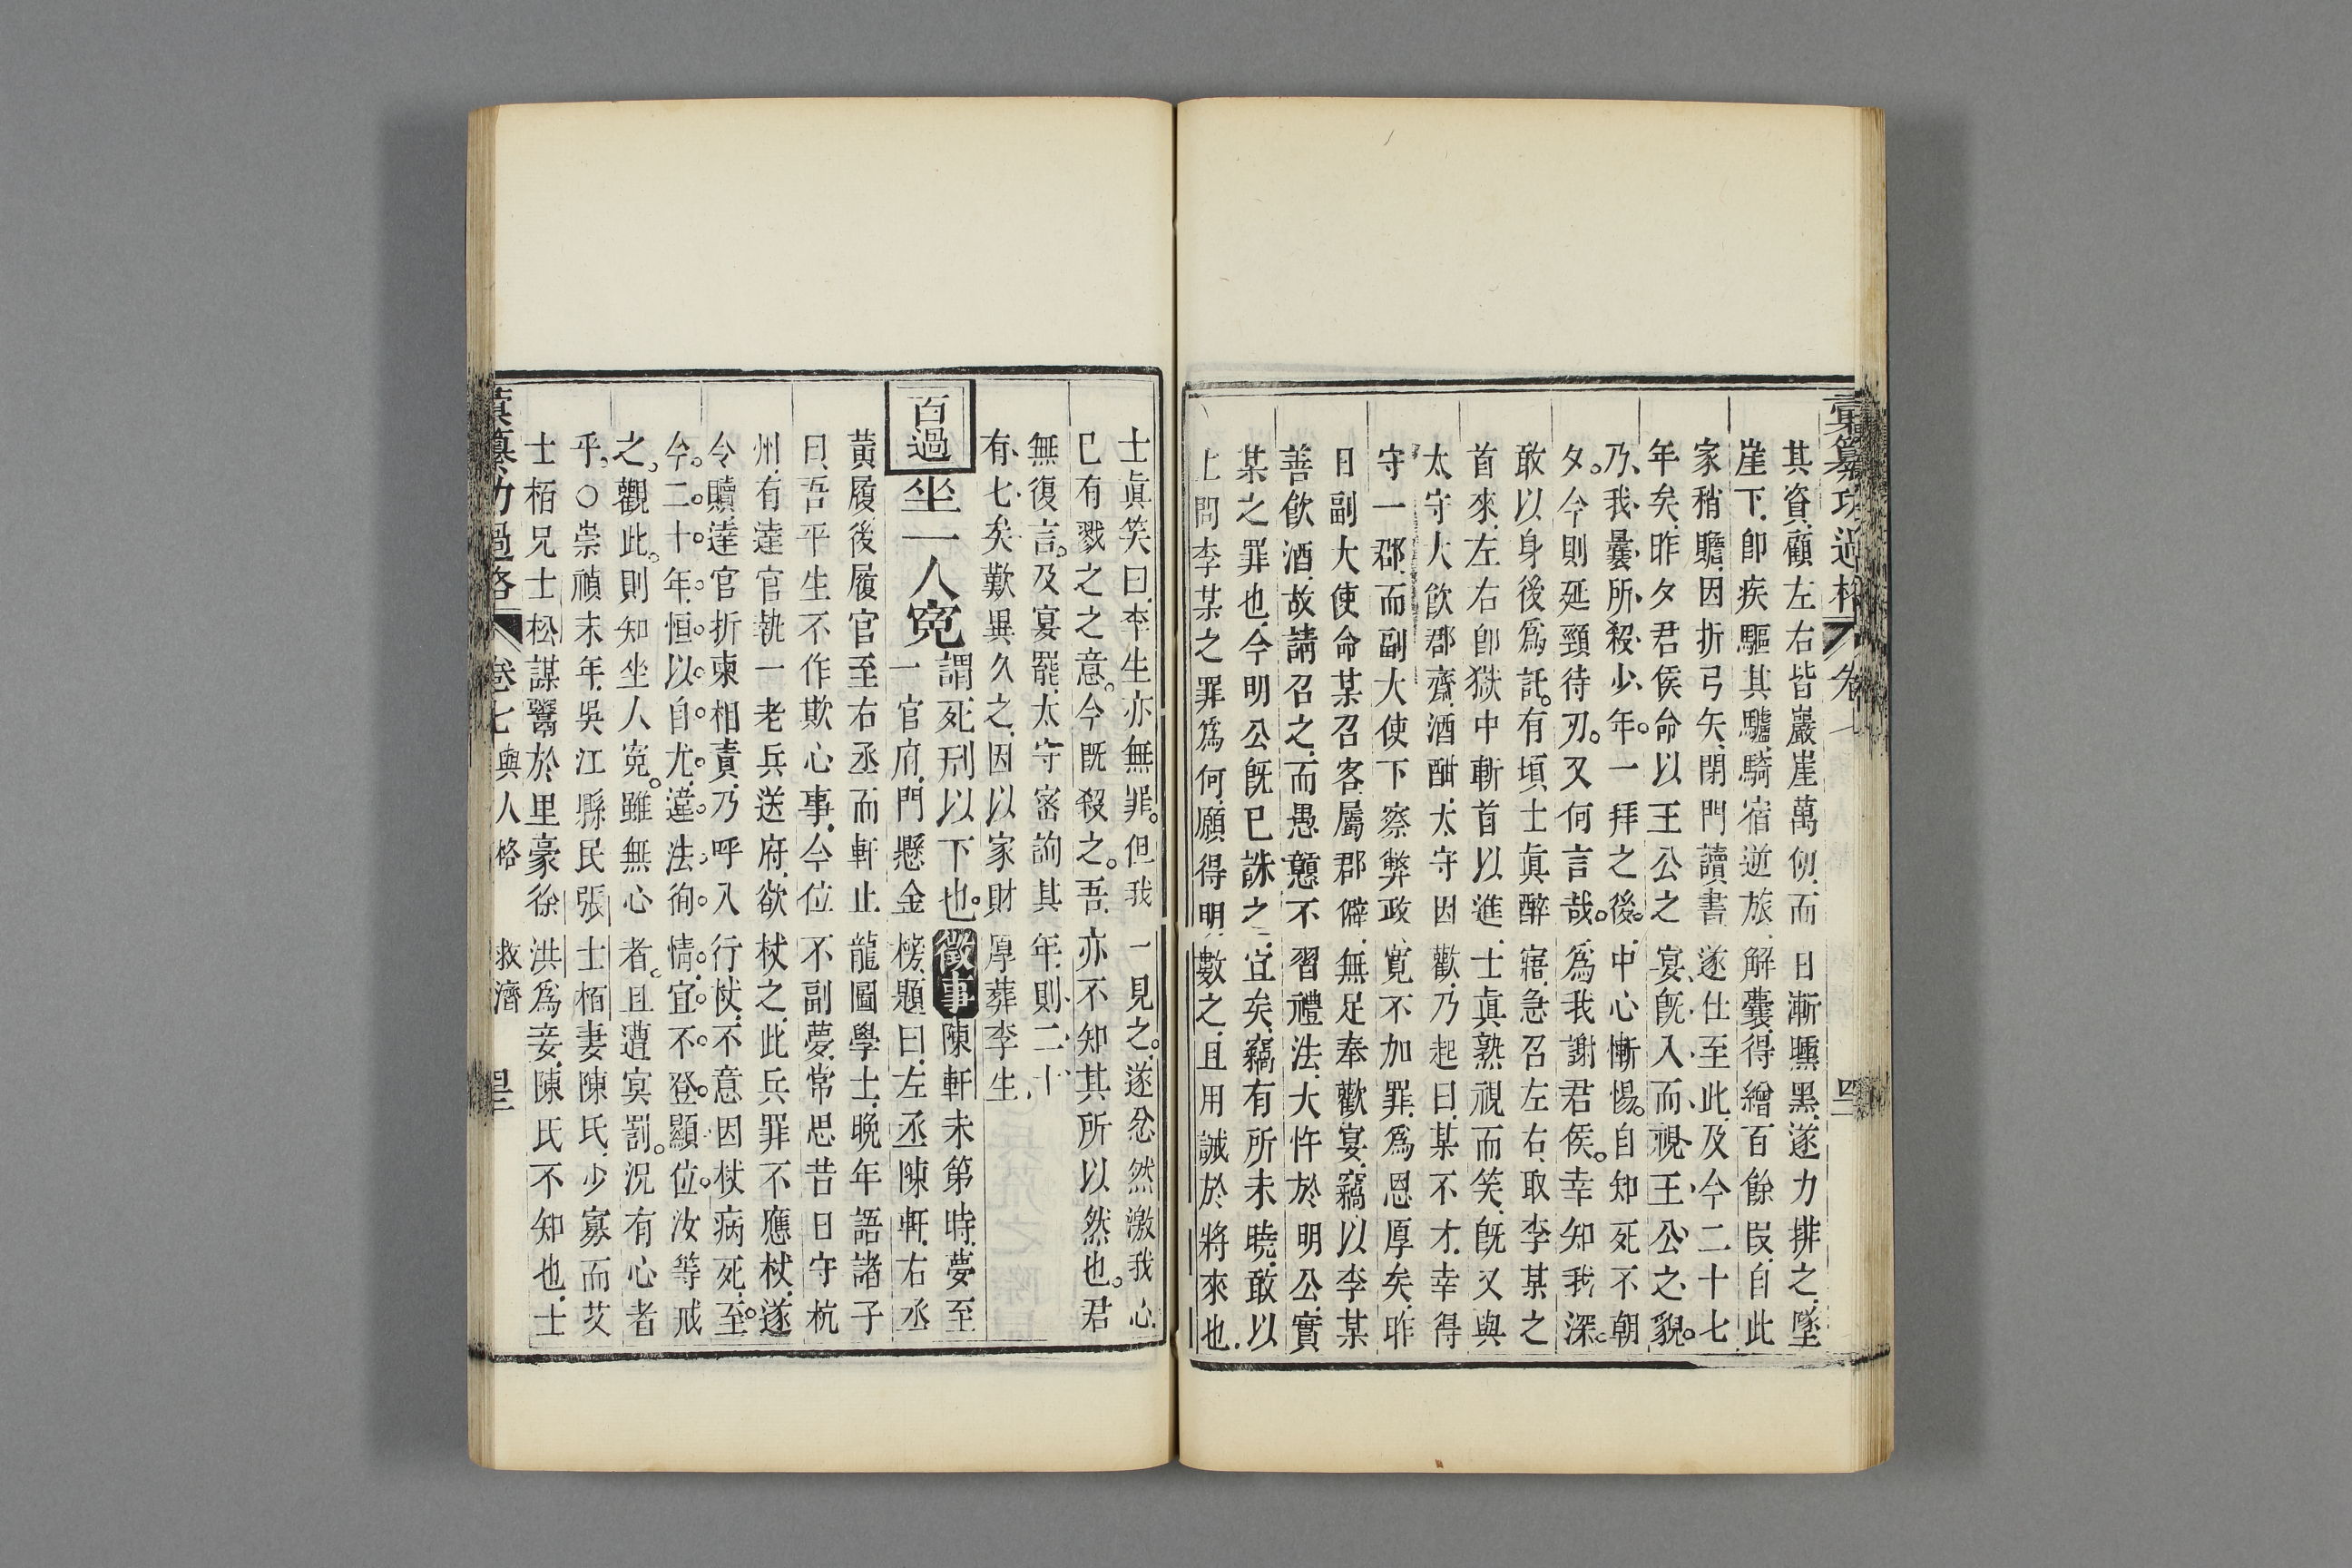 彙纂功過格 卷七 四三
其資顧左右皆巖崖萬仞而日漸曛黑遂力排之墜
崖下卽疾驅其驢騎宿逆旅解囊得繒百餘段自此
家稍贍因折弓矢閉門讀書遂仕至此及今二十七
年矣昨夕君侯命以王公之宴旣入而視王公之貌
乃我曩所殺少年一拜之後中心慚惕自知死不朝
夕今則延頸待刃又何言哉爲我謝君侯幸知我深
敢以身後爲託有頃士眞醉寤急召左右取李某之
首來左右卽獄中斬首以進士眞熟視而笑旣又與
太守大飮郡齋酒酣太守因歡乃起曰某不才幸得
守一郡而副大使下察弊政寬不加罪爲恩厚矣昨
日副大使命某召客屬郡僻無足奉歡宴竊以李某
善飮酒故請召之而愚戇不習禮法大忤於明公實
某之罪也今明公旣已誅之宜矣竊有所未曉敢以
上問李某之罪爲何願得明數之且用誡於將來也
士眞笑曰李生亦無罪但我一見之遂忿然激我心
已有戮之之意今旣殺之吾亦不知其所以然也君
無復言及宴罷太守密詢其年則二十
有七矣歎異久之因以家財厚葬李生
百過 坐一人寃 謂死刑以下也 徵事 陳軒未第時夢至
一官府門懸金榜題曰左丞陳軒右丞
黃履後履官至右丞而軒止龍圖學士晩年語諸子
曰吾平生不作欺心事今位不副夢常思昔日守杭
州有達官執一老兵送府欲杖之此兵罪不應杖遂
令贖達官折柬相責乃呼入行杖不意因杖病死至
今二十年恒以自尤違法徇情宜不登顯位汝等戒
之觀此則知坐人寃雖無心者且遭冥罰況有心者
乎○崇禎末年吳江縣民張士栢妻陳氏少寡而艾
士栢兄士松謀鬻於里豪徐洪爲妾陳氏不知也士
彙纂功過格 卷七 與人格 救濟 四三